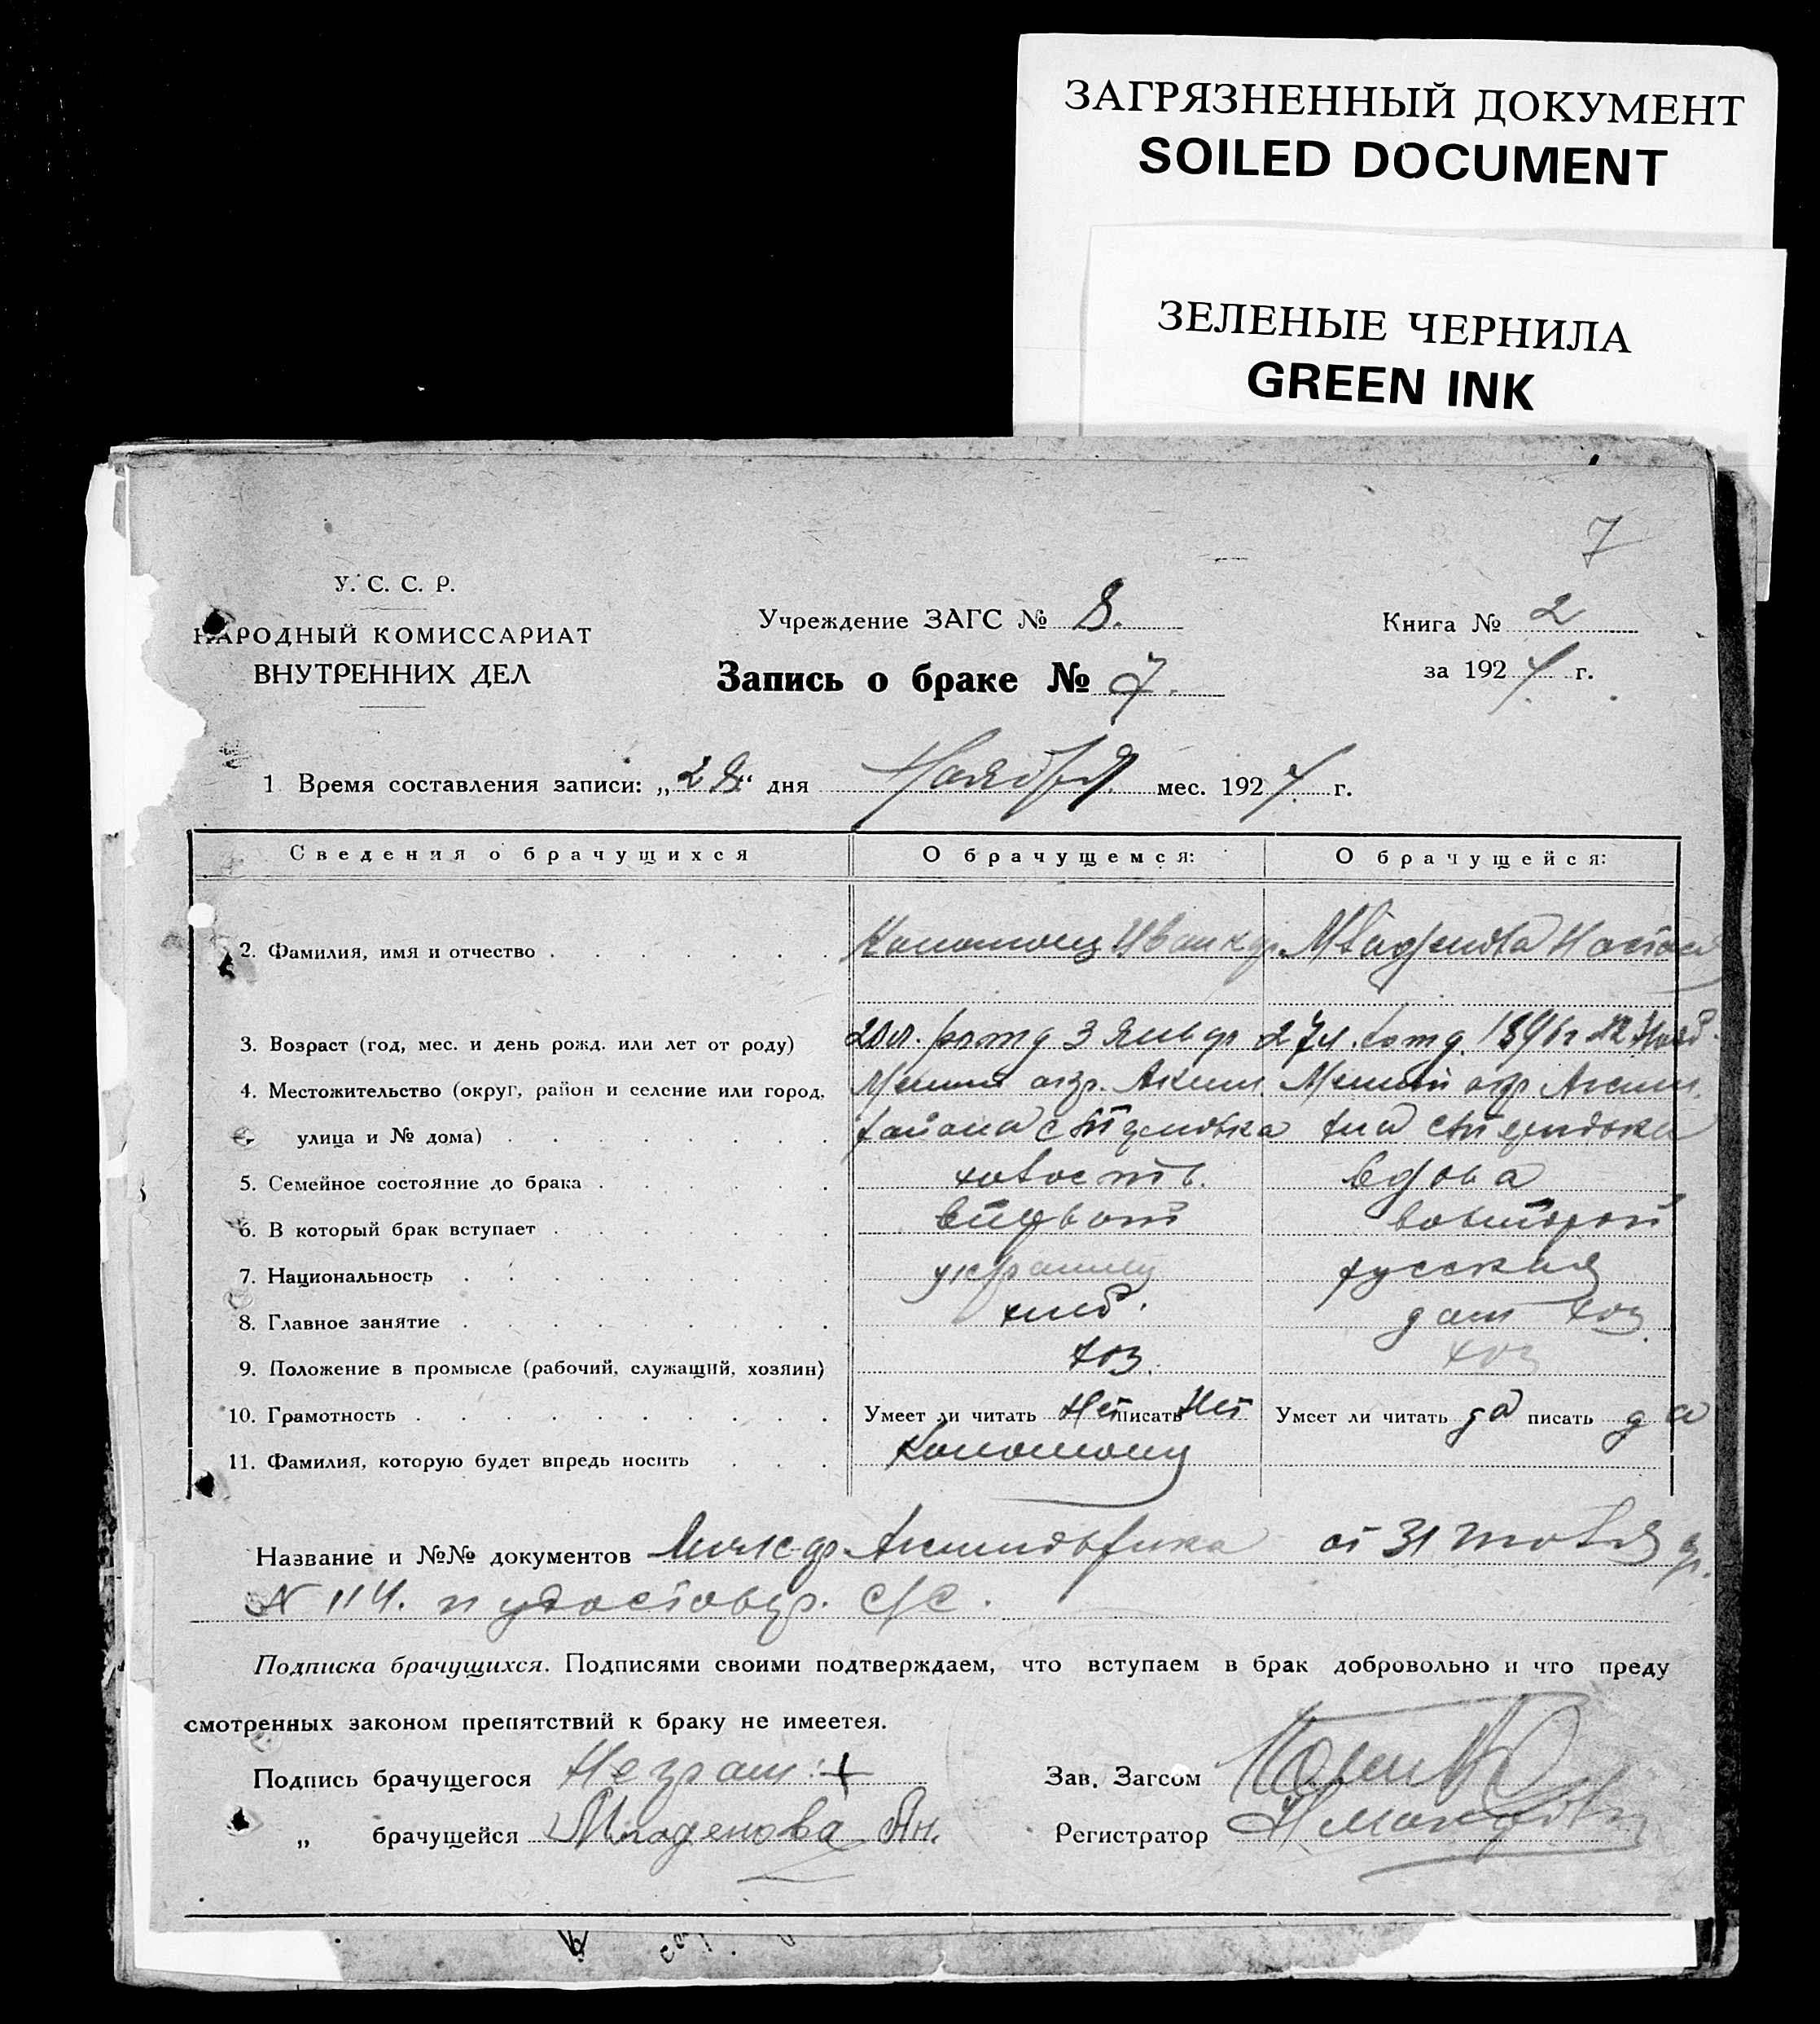 ЗАГРЯЗНЕННЫЙ ДОКУМЕНТ
SOILED DOCUMENT
ЗЕЛЕНЫЕ ЧЕРНИЛА
GREEN INK
7
У. С. С. Р.
НАРОДНЫЙ КОМИССАРИАТ
ВНУТРЕННИХ ДЕЛ
Учреждение ЗАГС № 8.
Запись о браке № 7.
Книга № 2
за 1924 г.
1 Время составления записи: „28“ дня Ноября мес. 1924 г.
Сведения о брачущихся О брачущемся: О брачущейся:
2. Фамилия, имя и отчество Коломоец Иван Младенова
3. Возраст (год, мес. и день рожд. или лет от роду) 20 л. 3 Январ 27 л. 1896 г 12 Нояб.
4. Местожительство (округ, район и селение или город, Мелит окр. Аким. Мелит окр Аким.
улица и № дома) района с
5. Семейное состояние до брака холост Вдова
6. В который брак вступает впервой вовторой
7. Национальность украинец русская
8. Главное занятие хлеб. дом хоз
9. Положение в промысле (рабочий, служащий, хозяин) хоз. хоз
10. Грамотность Умеет ли читать Нет писать Нет Умеет ли читать да писать да
11. Фамилия, которую будет впредь носить Коломоец
Название и №№ документов от 31
№ 114. и удостовер. с/с.
Подписка брачущихся. Подписями своими подтверждаем, что вступаем в брак добровольно и что преду
смотренных законом препятствий к браку не имеетея.
Подпись брачущегося Неграм: + Зав. Загсом
„ брачущейся Младенова Ан. Регистратор